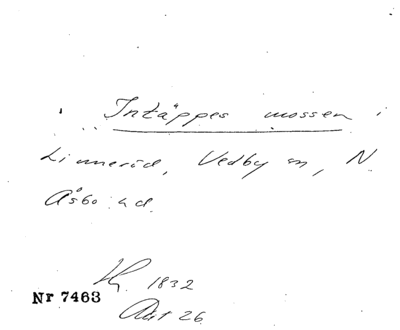 Intäppes mossen i
Linneröd, Vedby sn, N.
Åsbo hd.
1832
Nr 7463
Akt 26